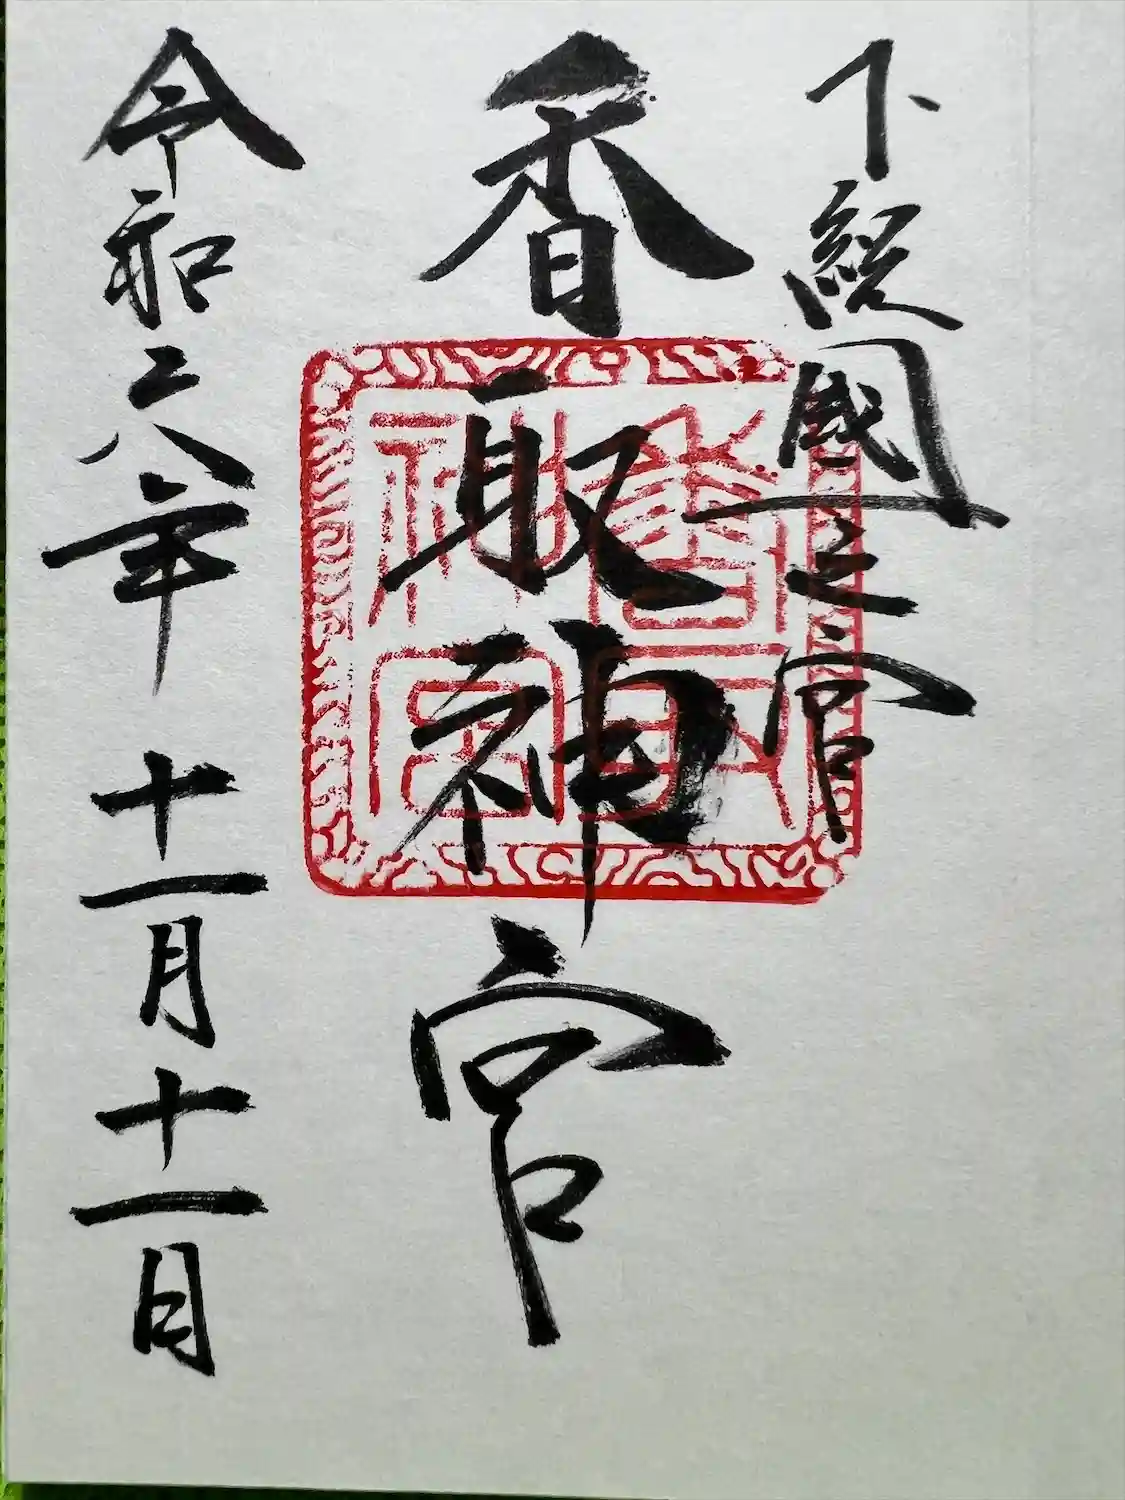 下総國一之宮
香取神宮
令和六年十一月十一日
香取神宮